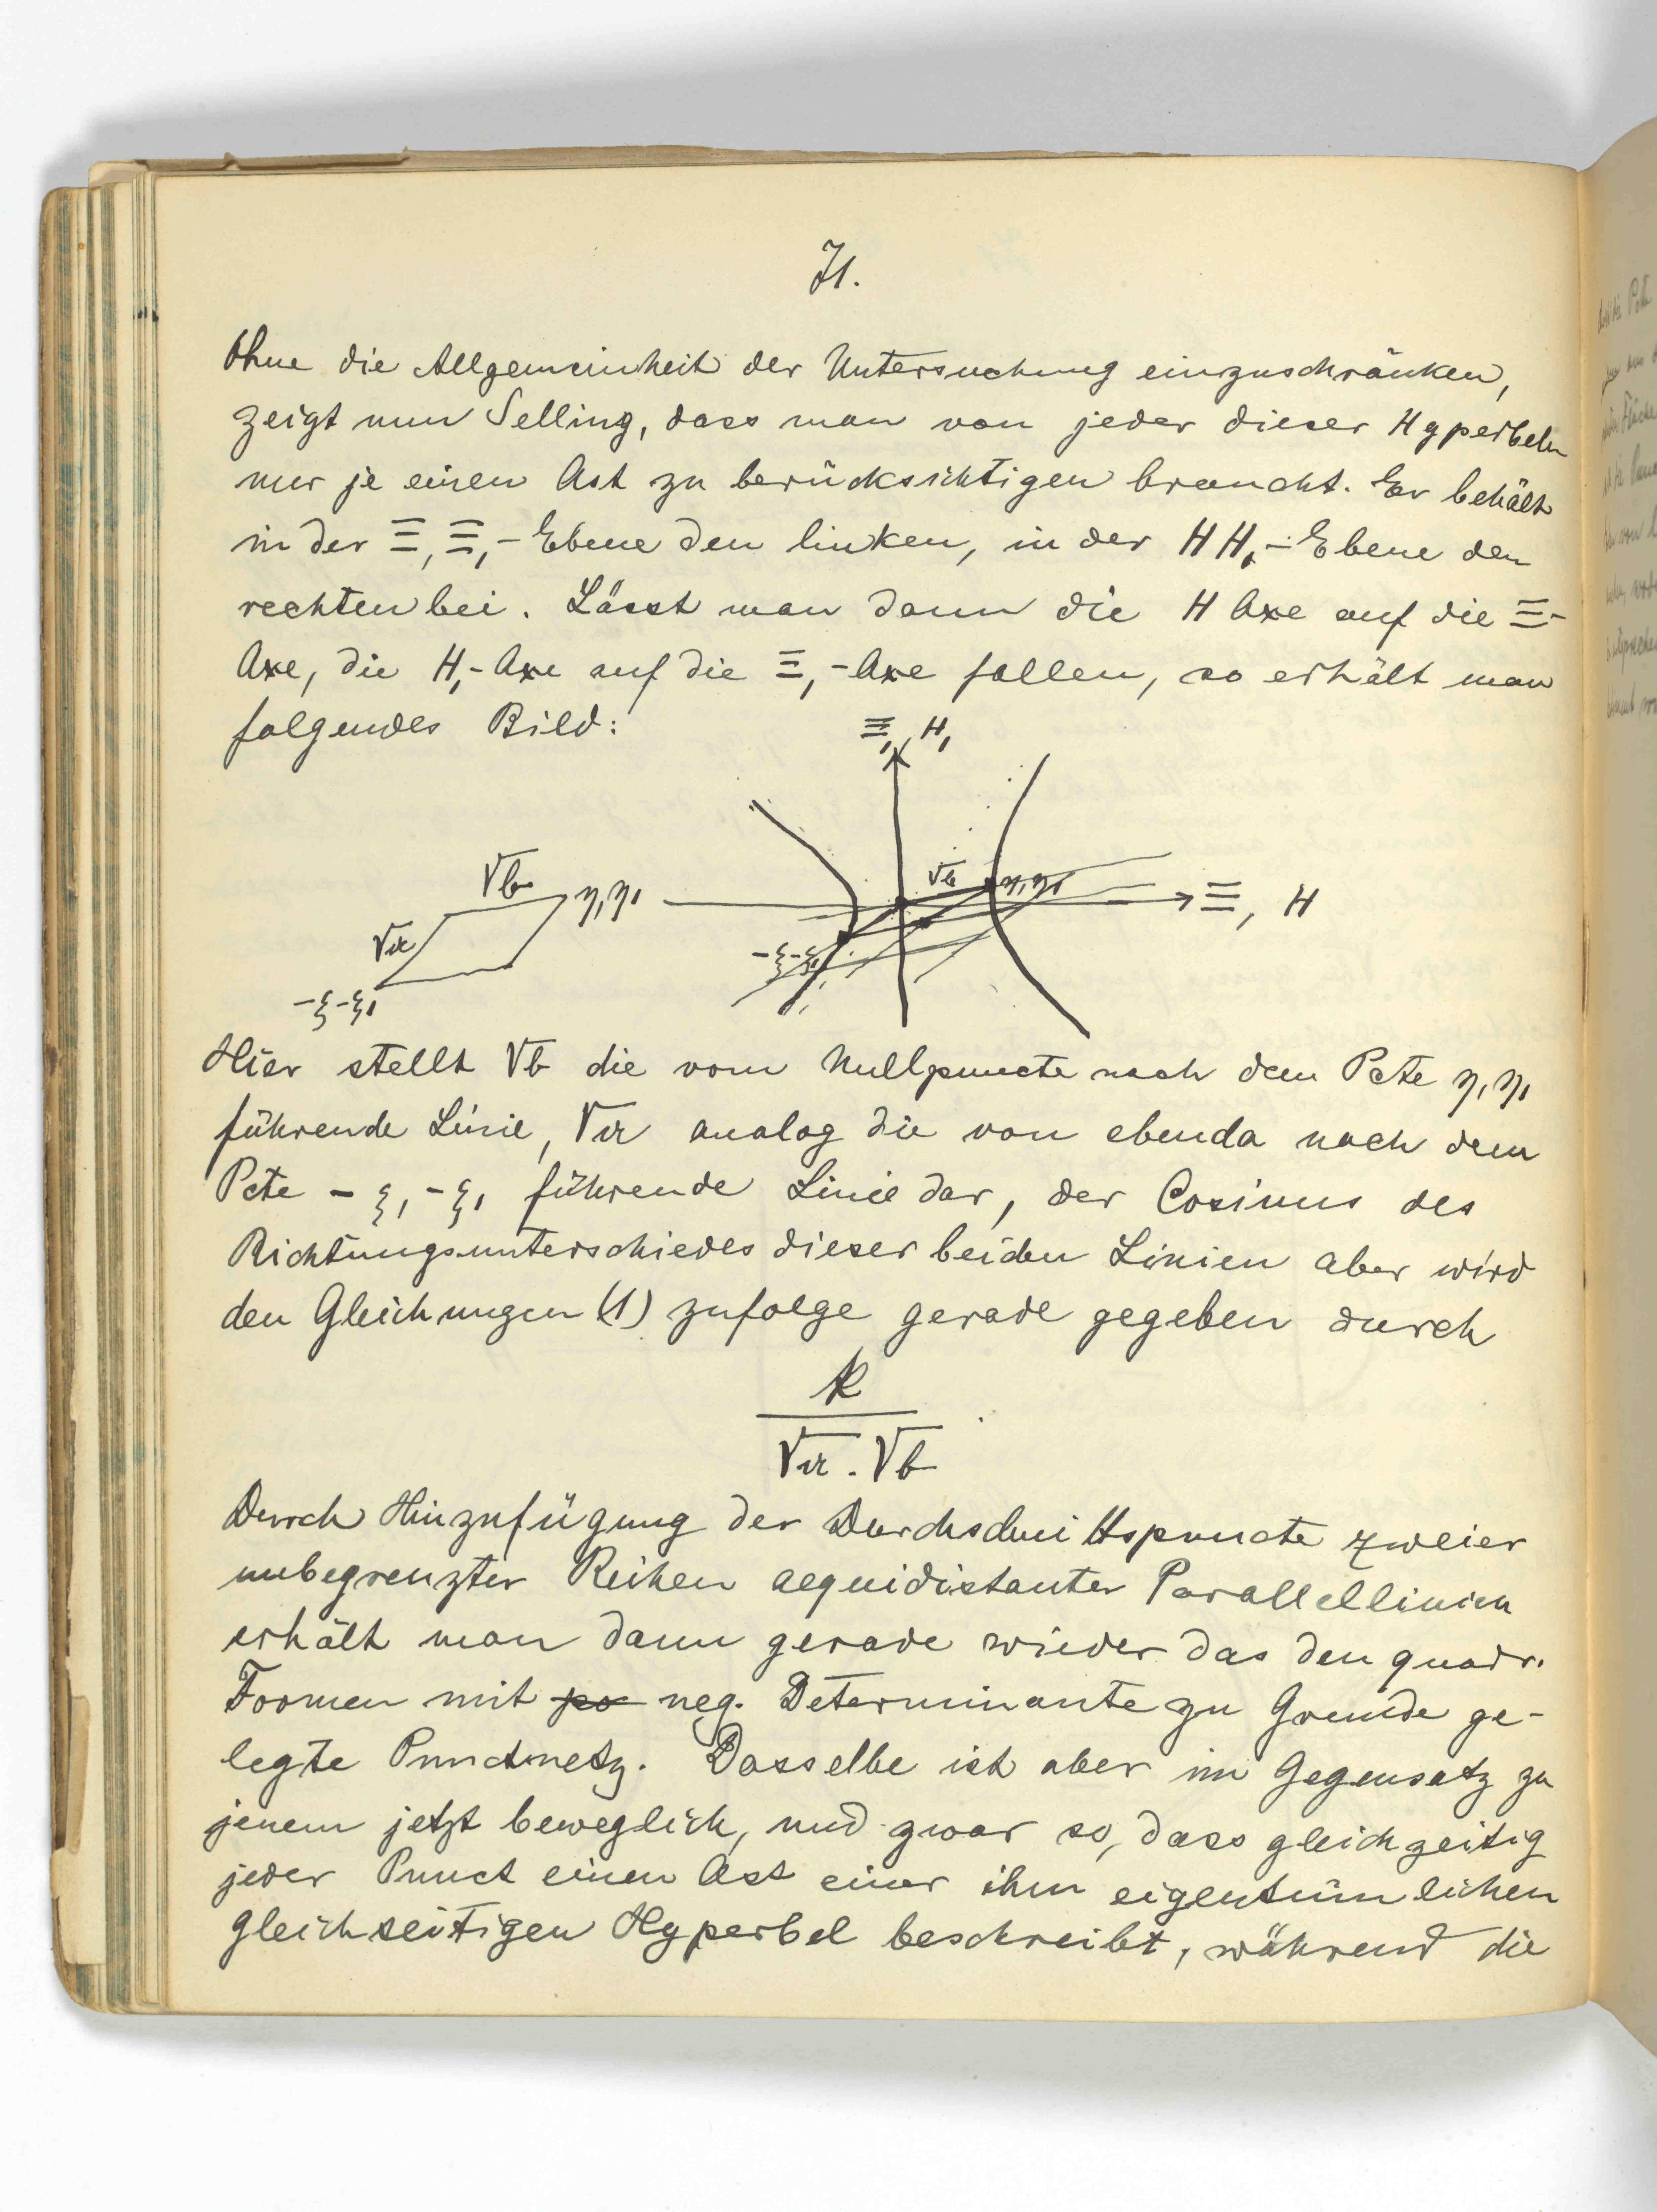 71.
Ohne die Allgemeinheit der Untersuchung einzuschränken,
zeigt nun Selling, dass man von jeder dieser Hyperbeln
nur je einen Ast zu berücksichtigen braucht. Er behält
in der Ξ, Ξ₁-Ebene den linken, in der H H₁-Ebene den
rechten bei. Lässt man dann die H Axe auf die Ξ-
Axe, die H₁-Axe auf die Ξ₁-Axe fallen, so erhält man
folgendes Bild:
Ξ₁, H₁
√b η, η₁
√a
-ξ, -ξ₁
√b η, η₁
Ξ, H
-ξ, -ξ₁
Hier stellt √b die vom Nullpuncte nach dem Pcte η, η₁
führende Linie, √a analog die von ebenda nach dem
Pcte -ξ, -ξ₁ führende Linie dar, der Cosinus des
Richtungsunterschiedes dieser beiden Linien aber wird
den Gleichungen (1) zufolge gerade gegeben durch
k
√a . √b
Durch Hinzufügung der Durchschnittspuncte zweier
unbegrenzter Reihen aequidistanter Parallellinien
erhält man dann gerade wieder das den quadr.
Formen mit po neg. Determinante zu Grunde ge-
legte Punctnetz. Dasselbe ist aber im Gegensatz zu
jenem jetzt beweglich, und zwar so, dass gleichzeitig
jeder Punct einen Ast einer ihm eigentümlichen
gleichseitigen Hyperbel beschreibt, während die